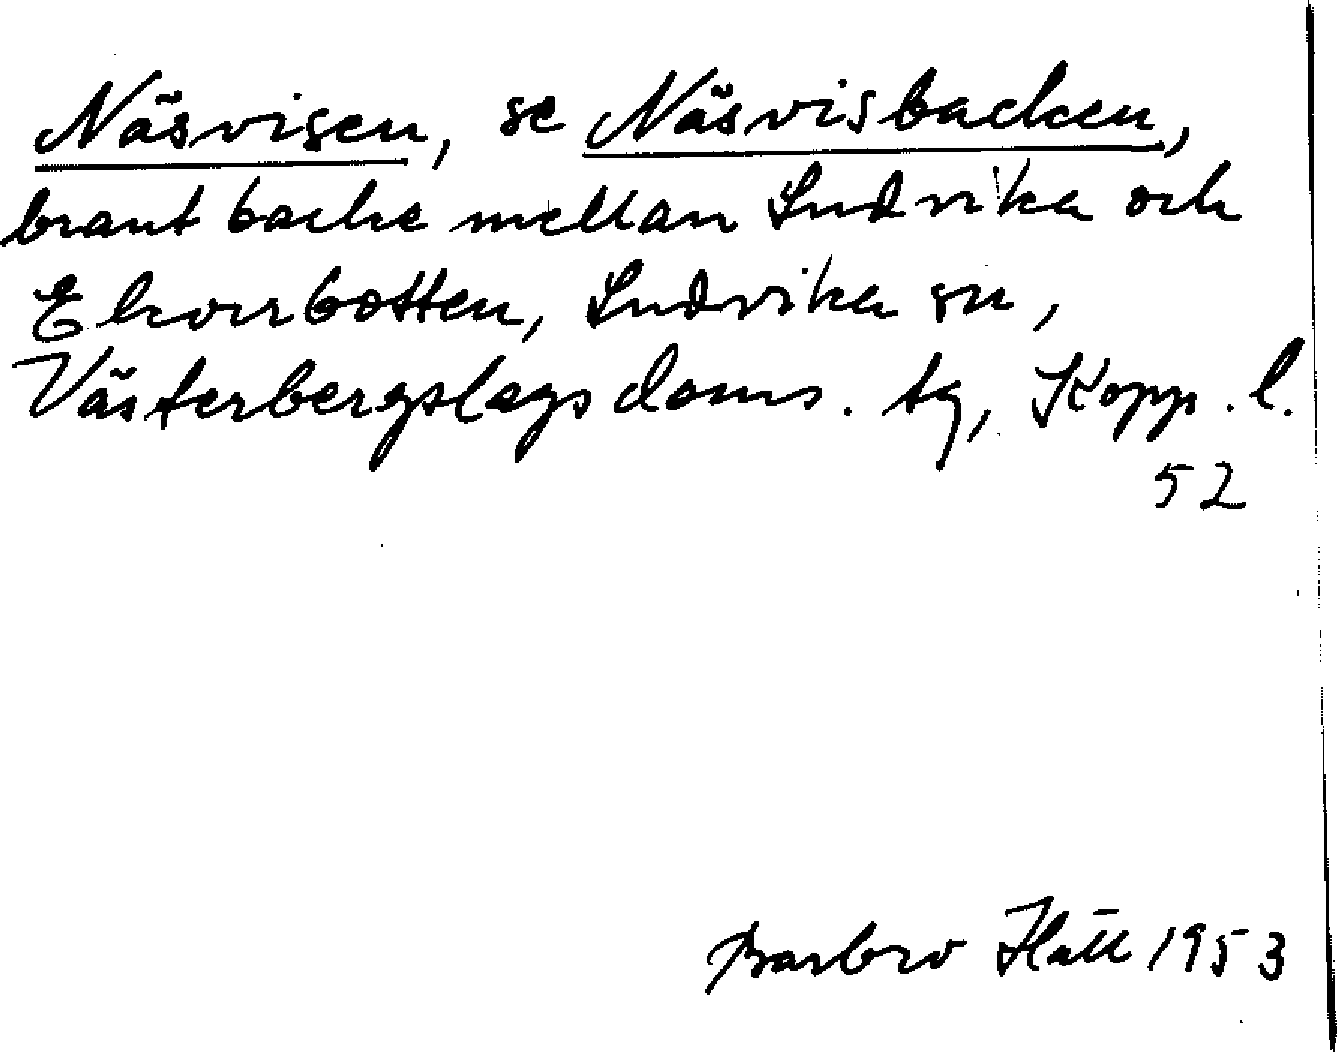 Näsvisen, se Näsvisbacken,
brant backe mellan Ludvika och
Ekorrbotten, Ludvika sn,
Västerbergslags doms. tg, Kopp. l.
52
Barbro 1953